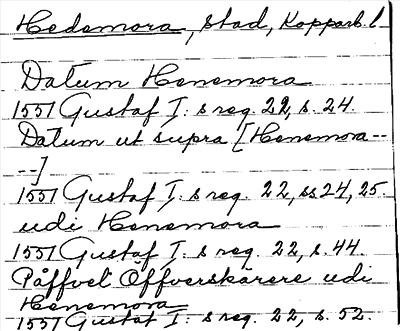 Hedemora, stad, Kopparb. l.
Datum Henemora
1551 Gustaf I: s reg. 22, s. 24.
Datum ut supra [Henemora --
--]
1551 Gustaf I: s reg. 22, ss 24, 25.
udi Henemora
1551 Gustaf I: s reg. 22, s. 44.
Påffvel Öffverskärere udi
Henemora
1551 Gustaf I: s reg. 22, s. 52.